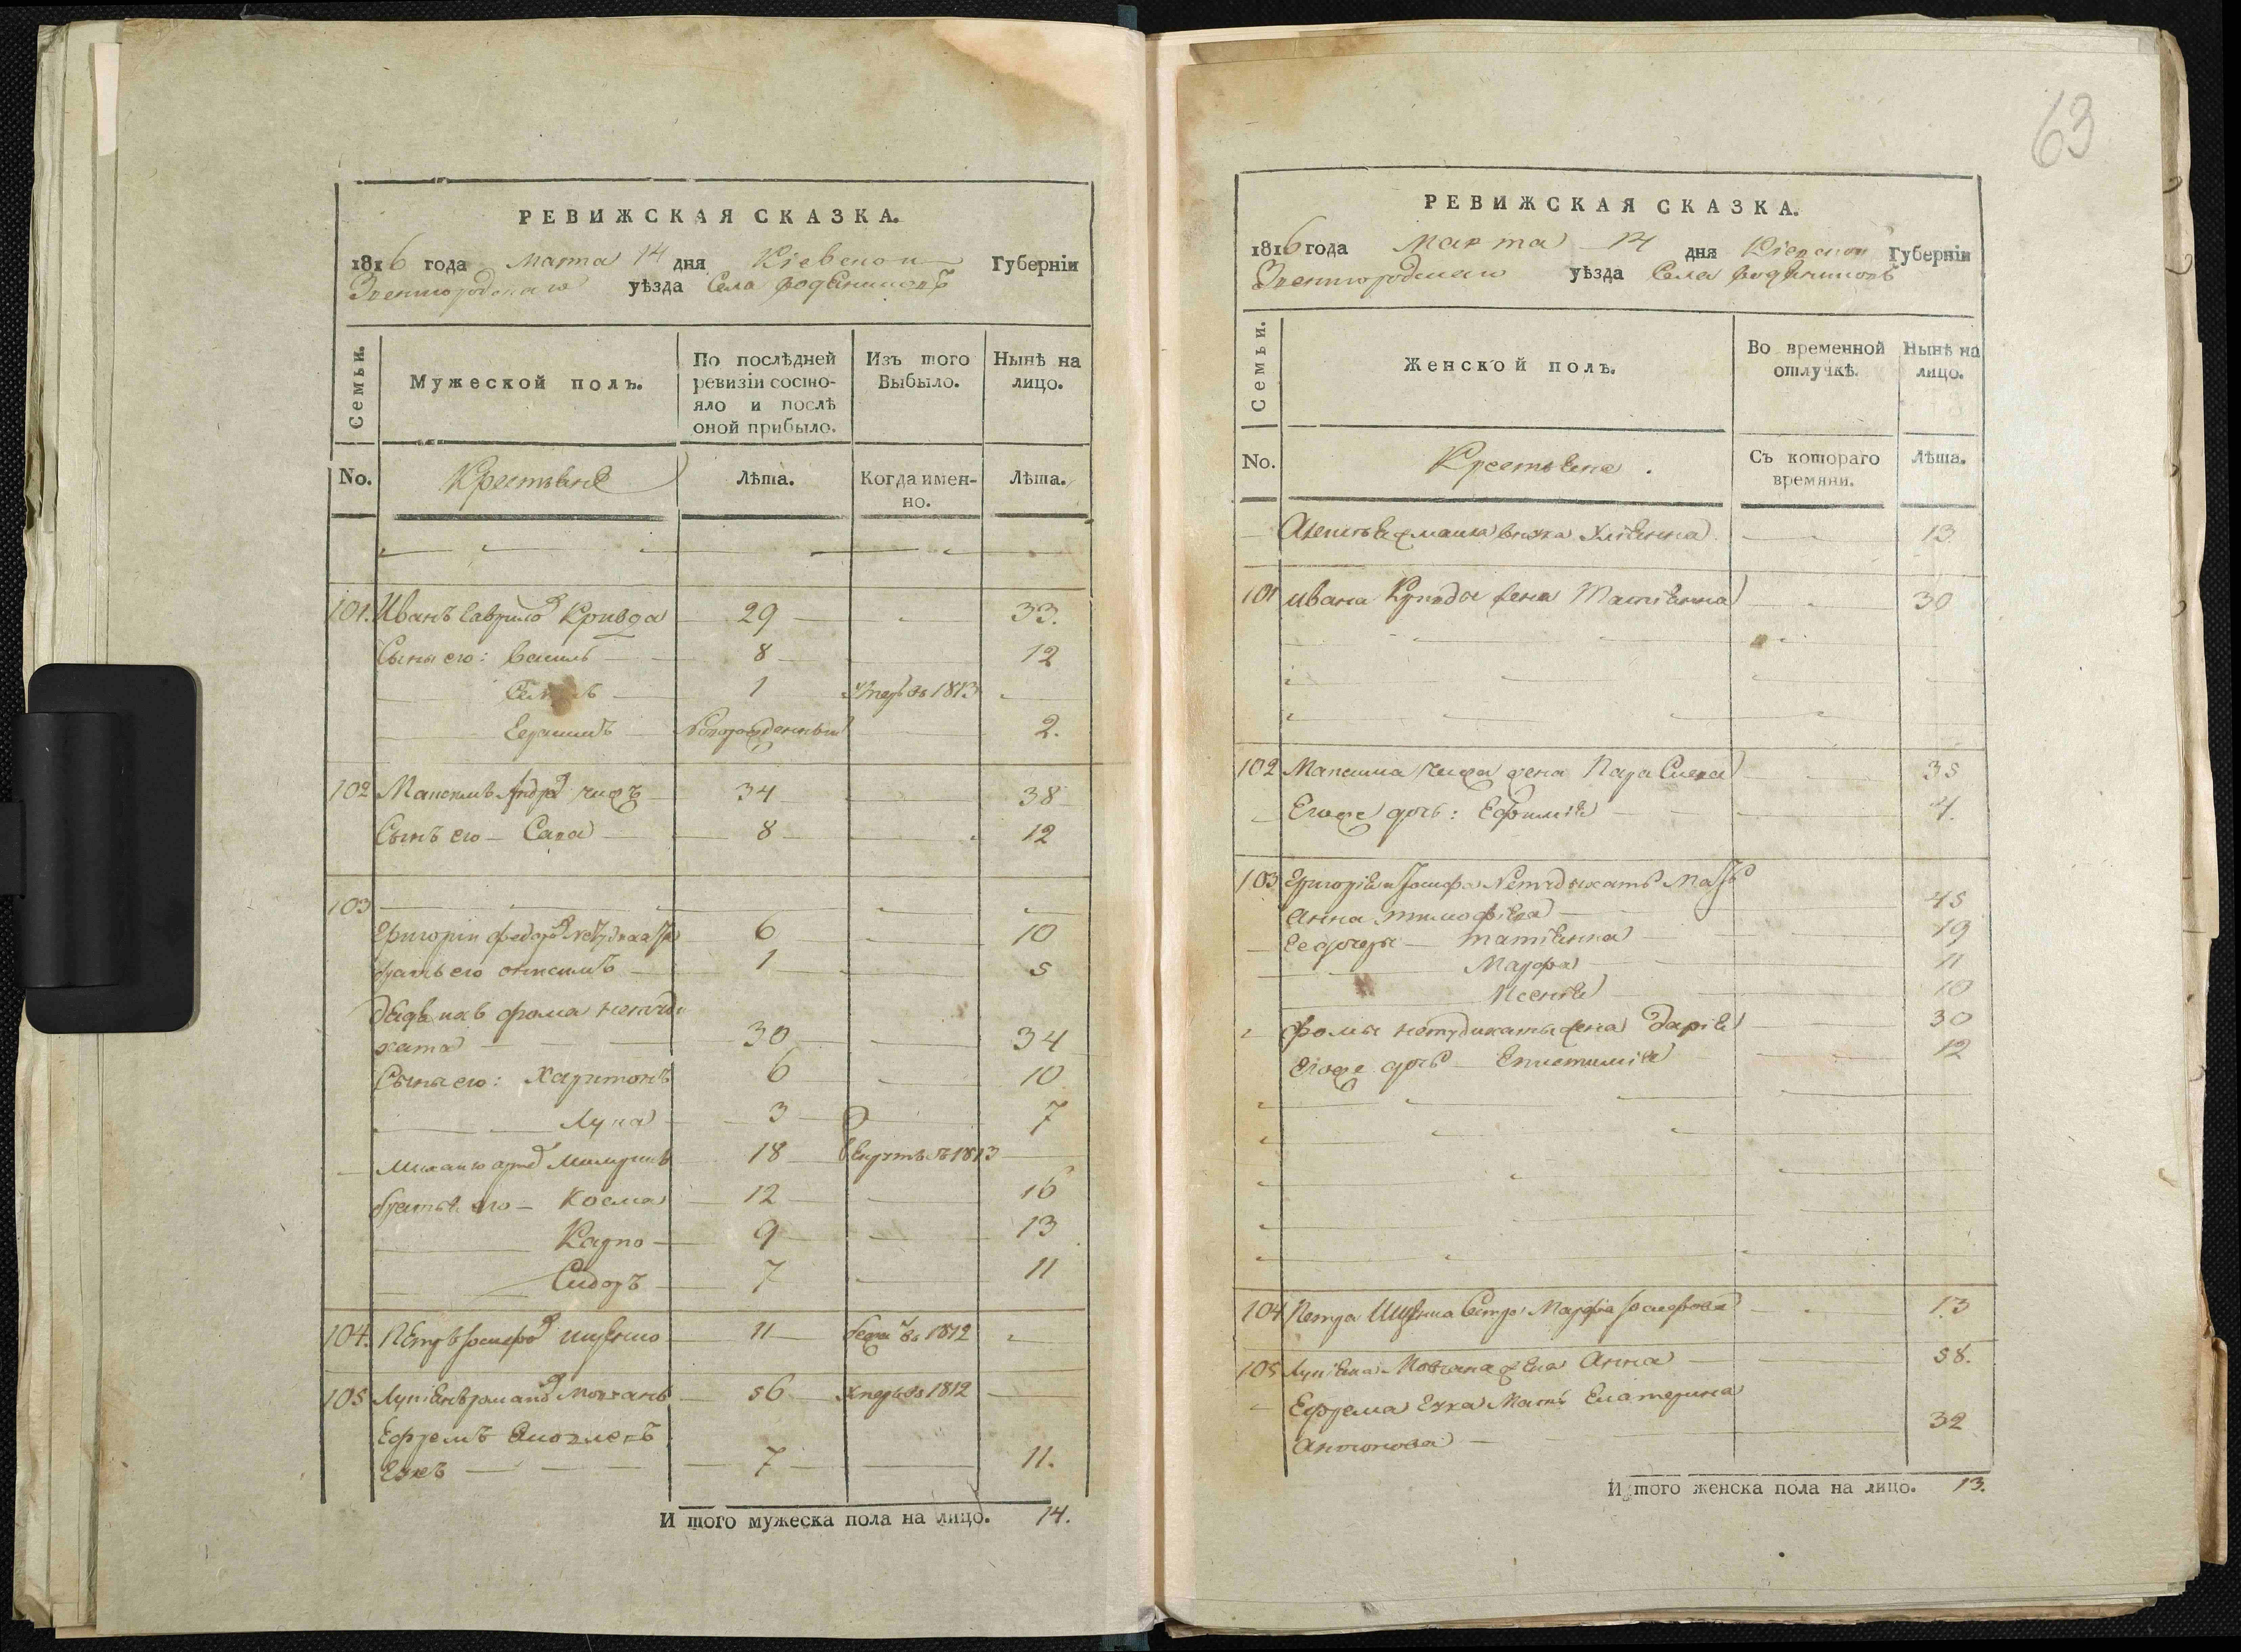 РЕВИЖСКАЯ СКАЗКА.
1816 года Марта 14 дня Кіевской Губерніи
Звенигородскаго уѣзда Села
Семьи.
Мужеской полъ.
По послѣдней ревизіи состояло и послѣ оной прибыло.
Изъ того Выбыло.
Нынѣ на лицо.
No.
Крестьяне
Лѣта.
Когда именно.
Лѣта.
101. Иванъ Гаврилов Кривда 29 33.
Сыны его: Василь 8 12
1 Умеръ въ 1813
Герасимъ Новорожденный 2.
102 Максимъ Андре Чижъ 34 38
Сынъ его Сава 8 12
103
Григорій Федоров 6 10
братъ его Онисимъ 1 5
дядя ихъ Фома Нетуды
хата 30 34
Сыны его: Харитонъ 6 10
Лука 3 7
Михайло 18 въ 1813
братья его Косма 12 16
Карпо 9 13
Сидоръ 7 11
104. Петръ Іосифов 11 бежа въ 1812
105 Лукіянъ Романов Мовчанъ 56 Умеръ въ 1812
Ефремъ
7 11.
И того мужеска пола на лицо. 14.
63
РЕВИЖСКАЯ СКАЗКА.
1816 года Марта 14 дня Кіевской Губерніи
Звенигородскаго уѣзда Села
Семьи.
Женской полъ.
Во временной отлучкѣ.
Нынѣ на лицо.
No.
Крестьяне.
Съ котораго времяни.
Лѣта.
внука Уліянна 13
101 Ивана Кривды жена Татіянна 30
102 Максима Чижа жена Параскева 35
Егоже дочь: Ефимія 4.
103 Григорія и Іосифа Нетудыхатъ Мать
Анна Тимофѣева 45
Ее дочери Татіянна 19
Марфа 11
Ксенія 10
Фомы Нетудыхаты жена Дарія 30
Егоже дочь Епистимія 12
104 Петра сестра Марфа Іосифова 13
105 Лукіяна Мовчана жена Анна 58.
Ефрема Мать Екатерина
32
И того женска пола на лицо. 13.